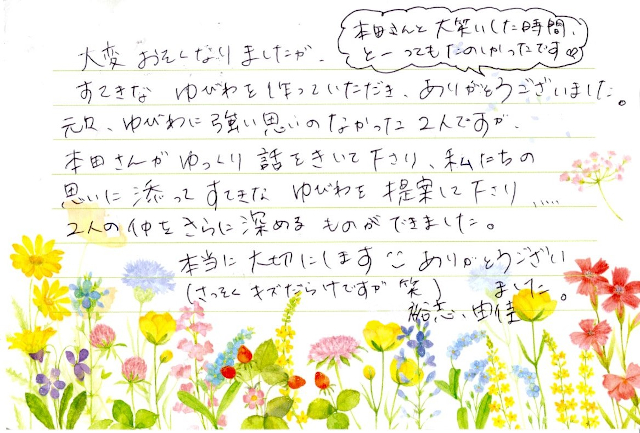 本田さんと大笑いした時間、
とーってもたのしかったです
大変おそくなりましたが、
すてきな ゆびわを作っていただき、ありがとうございました。
元々、ゆびわに強い思いのなかった2人ですが、
本田さんがゆっくり話をきいて下さり、私たちの
思いに添ってすてきな ゆびわを提案して下さり……
2人の仲をさらに深めるものができました。
本当に大切にします ありがとうござい
ました。
(さっそくキズだらけですが 笑)
裕志、由佳